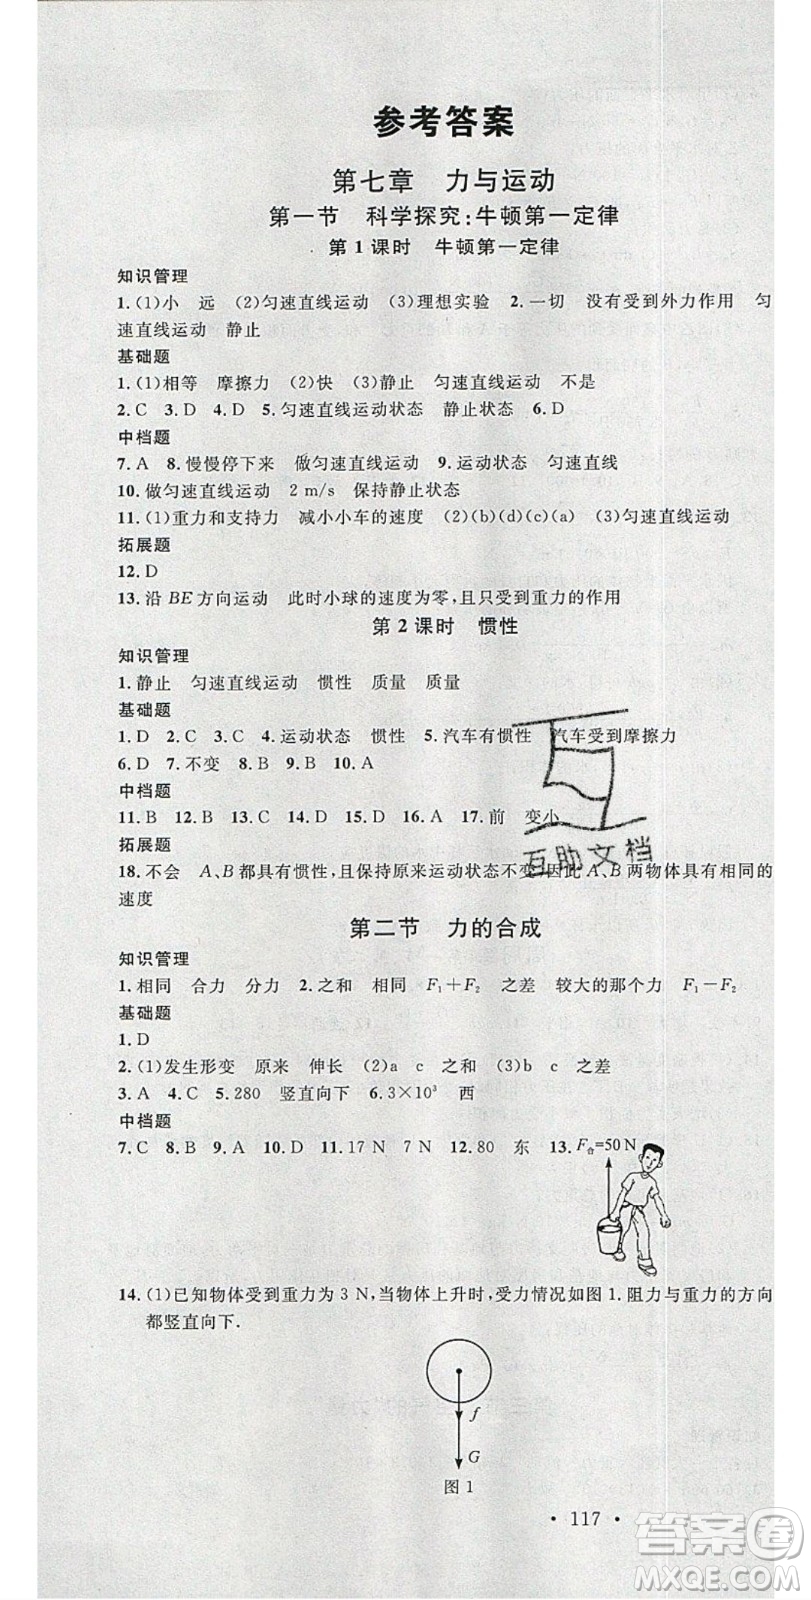 参考答案
第七章 力与运动
第一节 科学探究:牛顿第一定律
第1课时 牛顿第一定律
知识管理
1.(1)小 远 (2)匀速直线运动 (3)理想实验 2.一切 没有受到外力作用 匀
速直线运动 静止
基础题
1.(1)相等 摩擦力 (2)快 (3)静止 匀速直线运动 不是
2.C 3.D 4.D 5.匀速直线运动状态 静止状态 6.D
中档题
7.A 8.慢慢停下来 做匀速直线运动 9.运动状态 匀速直线
10.做匀速直线运动 2 m/s 保持静止状态
11.(1)重力和支持力 减小小车的速度 (2)(b)(d)(c)(a) (3)匀速直线运动
拓展题
12.D
13.沿BE方向运动 此时小球的速度为零,且只受到重力的作用
第2课时 惯性
知识管理
1.静止 匀速直线运动 惯性 质量 质量
基础题
1.D 2.C 3.C 4.运动状态 惯性 5.汽车有惯性 汽车受到摩擦力
6.D 7.不变 8.B 9.B 10.A
中档题
11.B 12.B 13.C 14.B 15.D 16.A 17.前 变小
拓展题
互助文档
18.不会 A、B都具有惯性,且保持原来运动状态不变,因此A、B两物体具有相同的
速度
第二节 力的合成
知识管理
1.相同 合力 分力 2.之和 相同 F₁+F₂ 之差 较大的那个力 F₁-F₂
基础题
1.D
2.(1)发生形变 原来 伸长 (2)a c 之和 (3)b c 之差
3.A 4.C 5.280 竖直向下 6.3×10³ 西
中档题
7.C 8.B 9.A 10.D 11.17 N 7 N 12.80 东 13. F合=50 N
14.(1)已知物体受到重力为3 N,当物体上升时,受力情况如图1.阻力与重力的方向
都竖直向下.
f
G
图1
• 117 •
答案圈
MXQE.COM